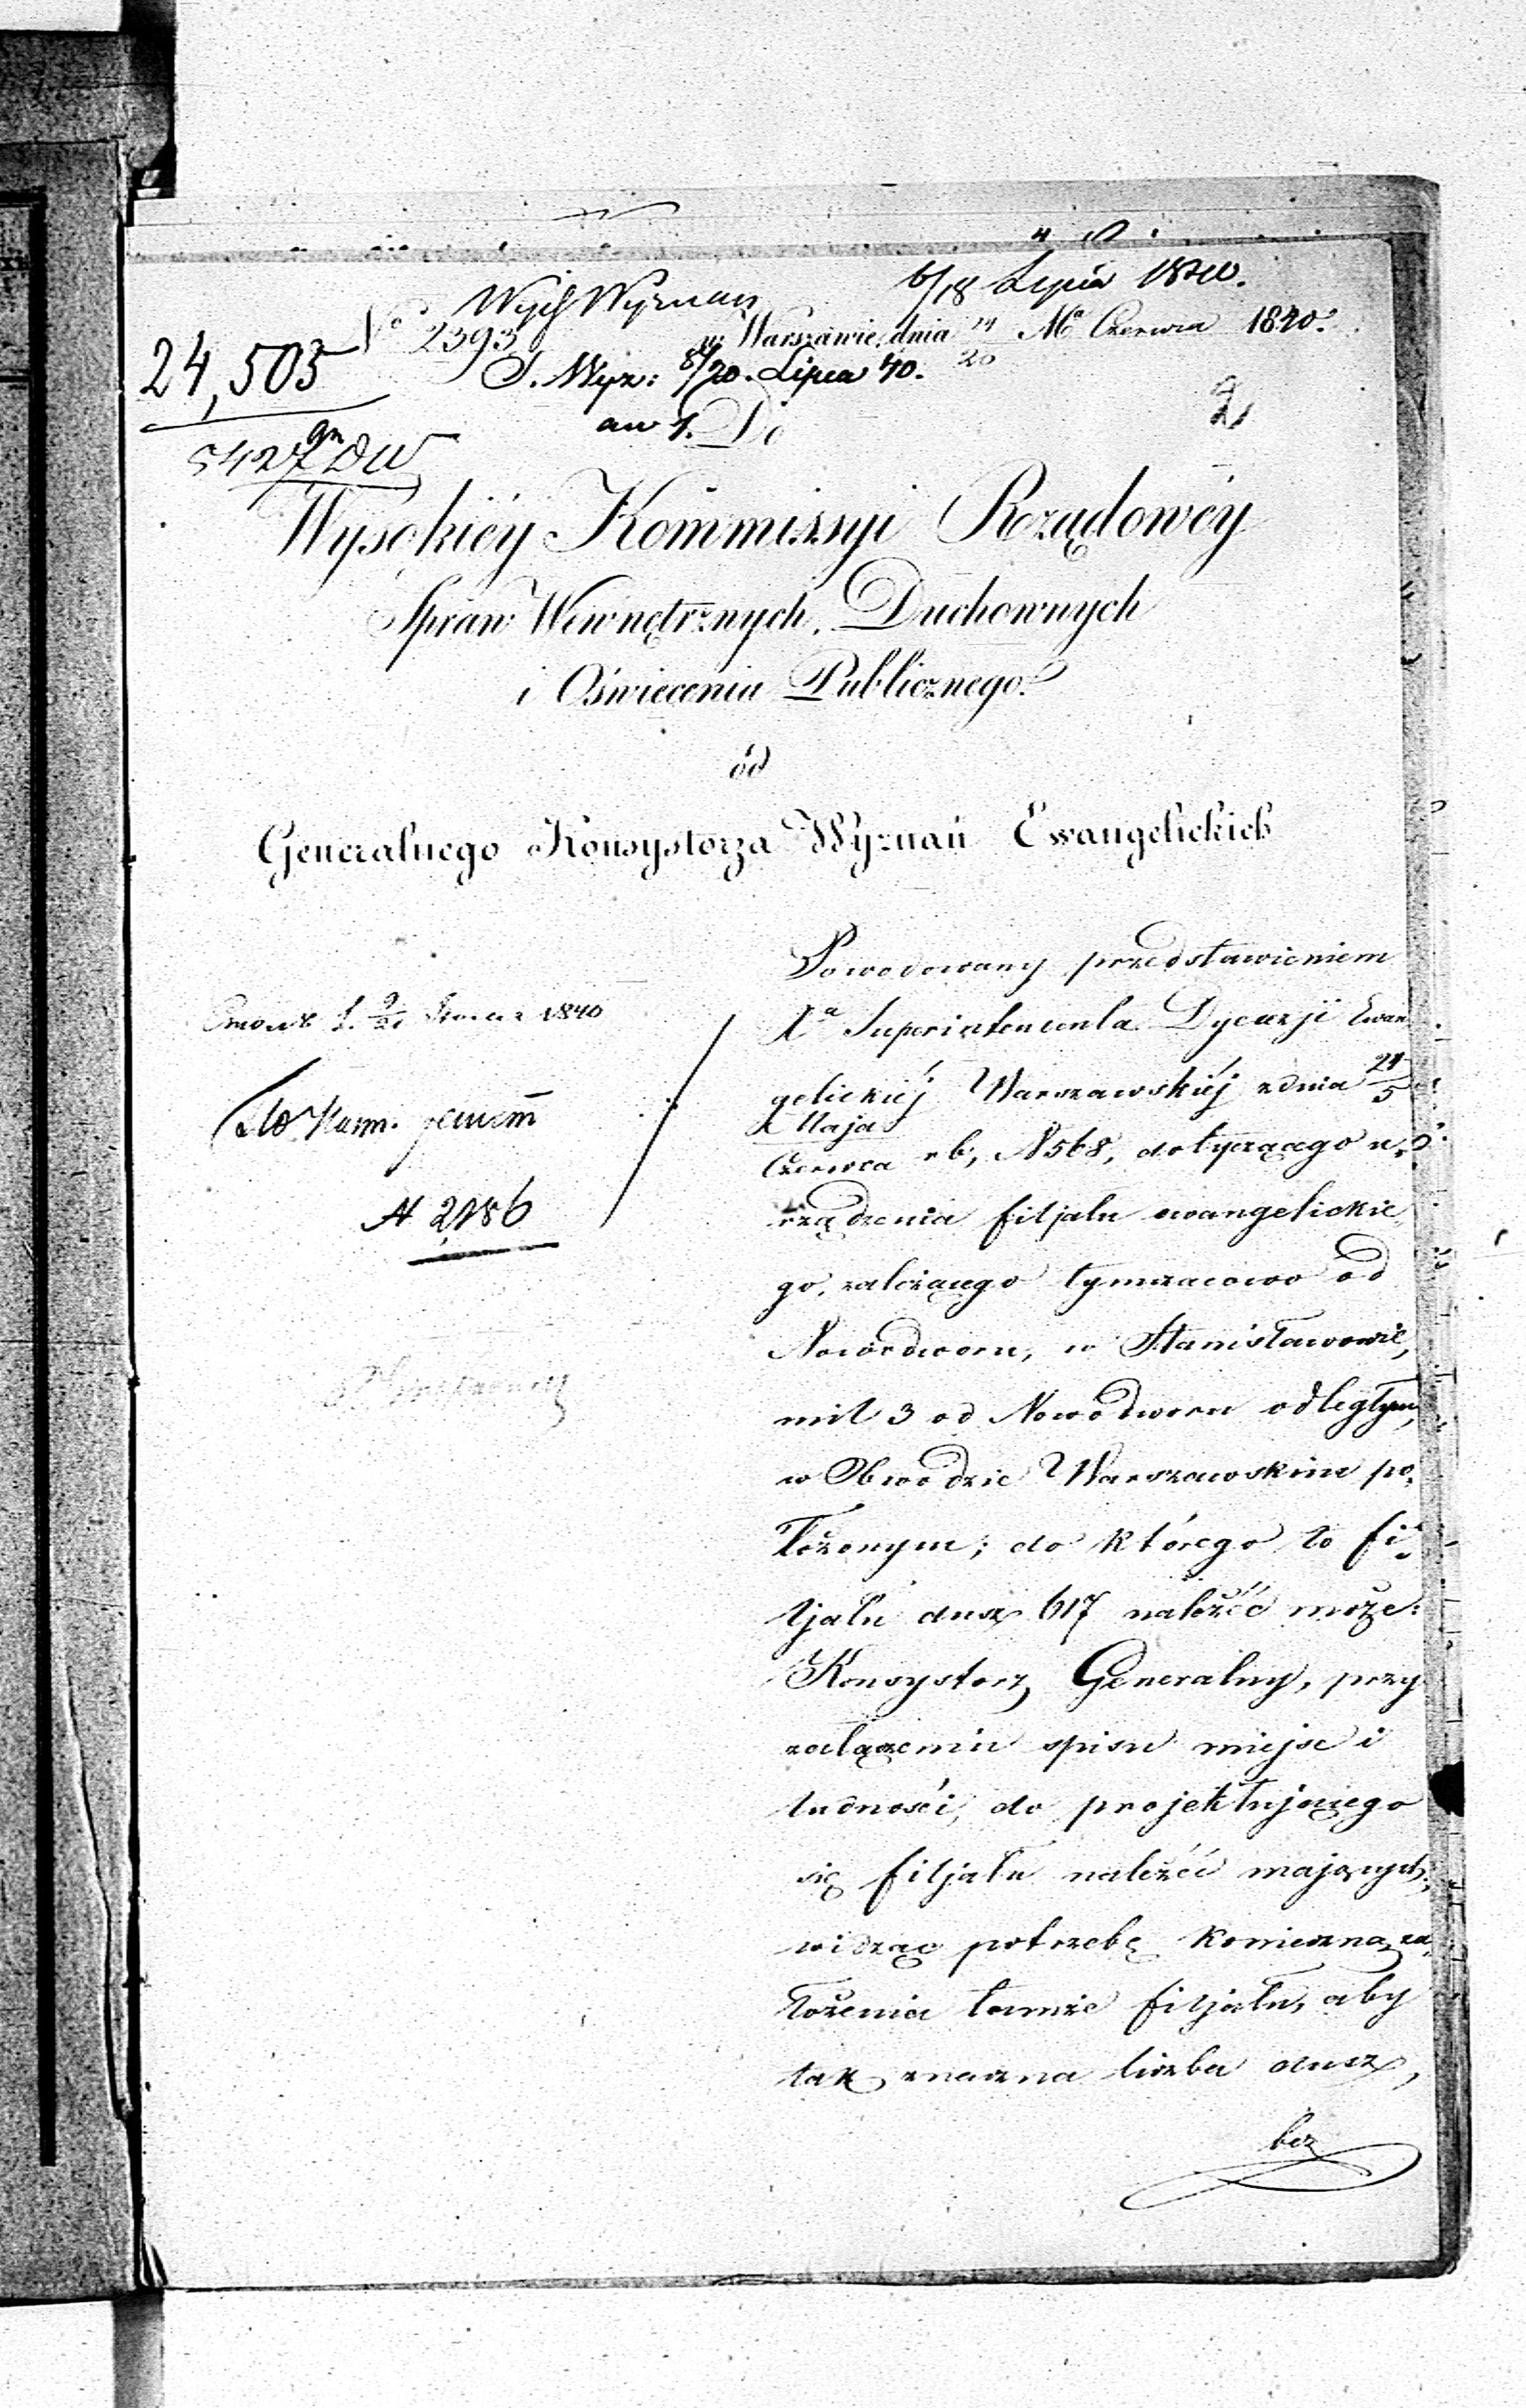 6/18 Lipca 1840.
Wych Wyznań
No 2393
w Warszawie, dnia 14/26 Ma Czerwca 1840.
24,505
S. Wyz: 8/20. Lipca 40.
2
Do
5427
Wysokiéy Kommissyi Rządowéy
Spraw Wewnętrznych, Duchownych
i Oświecenia Publicznego.
od
Generalnego Konsystorza Wyznań Ewangelickich
Powodowany przedstawieniem
Xa Superintendenta Dyecezji Ewan
gelickiéj Warszawskiéj z dnia 24/5
Maja
Czerwca r b, N 568, dotyczącego u„
rządzenia filjału ewangelickie„
go, zależącego tymczasowo od
Nowodworu, w Stanisławowie,
mil 3 od Nowodworu odległym,
w Obwodzie Warszawskim po„
łożonym; do którego to fi„
ljału dusz 617 należéć może:
Konsystorz Generalny, przy
załączeniu spisu miejsc i
ludności, do projektującego
się filjału należéć mających,
widząc potrzebę konieczną za„
łożenia tamże filjału, aby
tak znaczna liczba dusz,
bez
1840